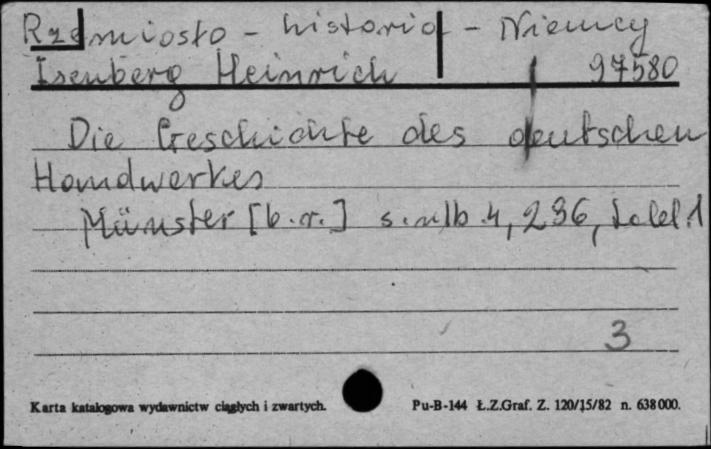 Rzemiosło - historia - Niemcy
Isenberg Heinrich 97580
Die Geschichte des deutschen
Handwerkes
Münster [b.r.] s. nlb. 4, 236, 1
3
Karta katalogowa wydawnictw ciągłych i zwartych.
Pu-B-144 Ł.Z.Graf. Z. 120/15/82 n. 638000.